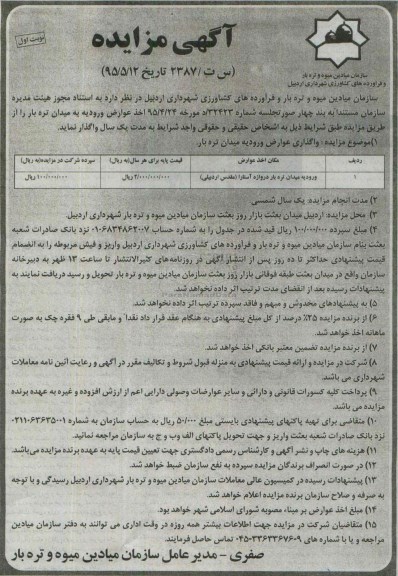 آگهی مزایده
نوبت اول
(س ت/۲۳۸۷ تاریخ ۹۵/۵/۱۲)
سازمان میادین میوه و تره بار
و فرآورده های کشاورزی شهرداری اردبیل
سازمان میادین میوه و تره بار و فرآورده های کشاورزی شهرداری اردبیل در نظر دارد به استناد مجوز هیئت مدیره
سازمان مستندا به بند چهار صورتجلسه شماره ۳۲۴۲۳ مورخه ۹۵/۴/۲۴ اخذ عوارض ورودیه به میدان تره بار را از
طریق مزایده طبق شرایط ذیل به اشخاص حقیقی و حقوقی واجد شرایط به مدت یک سال واگذار نماید.
۱)موضوع مزایده: واگذاری عوارض ورودیه میدان تره بار
ردیف مکان اخذ عوارض قیمت پایه برای هر سال(به ریال) سپرده شرکت در مزایده(به ریال)
۱ ورودیه میدان تره بار دروازه آستارا (مقدس اردبیلی) ۲/۰۰۰/۰۰۰/۰۰۰ ریال ۱۰۰/۰۰۰/۰۰۰ ریال
۲) مدت انجام مزایده: یک سال شمسی
۳) محل مزایده: اردبیل میدان بعثت بازار روز بعثت سازمان میادین میوه و تره بار شهرداری اردبیل.
۴) مبلغ سپرده ۱۰۰/۰۰۰/۰۰۰ ریال قید شده در جدول را به شماره حساب ۰۱۰۶۸۳۴۸۶۲۰۰۷ نزد بانک صادرات شعبه
بعثت بنام سازمان میادین میوه و تره بار و فرآورده های کشاورزی شهرداری اردبیل واریز و فیش مربوطه را به انضمام
قیمت پیشنهادی حداکثر تا ده روز پس از انتشار آگهی در روزنامه‌های کثیرالانتشار تا ساعت ۱۳ ظهر به دبیرخانه
سازمان واقع در میدان بعثت طبقه فوقانی بازار روز بعثت سازمان میادین میوه و تره بار تحویل و رسید دریافت نمایند به
پیشنهادات رسیده بعد از انقضای مدت ترتیب اثر داده نخواهد شد.
۵) به پیشنهادهای مخدوش و مبهم و فاقد سپرده ترتیب اثر داده نخواهد شد.
۶) از برنده مزایده ۲۵٪ درصد از کل مبلغ پیشنهادی به هنگام عقد قرار داد نقداً و مابقی طی ۹ فقره چک به صورت
ماهانه اخذ خواهد شد.
۷) از برنده مزایده تضمین معتبر بانکی اخذ خواهد شد.
۸) شرکت در مزایده و ارائه قیمت پیشنهادی به منزله قبول شروط و تکالیف مقرر در آگهی و رعایت آئین نامه معاملات
شهرداری می باشد.
۹) پرداخت کلیه کسورات قانونی و دارائی و سایر عوارضات وصولی دارایی اعم از ارزش افزوده و غیره به عهده برنده
مزایده می باشد.
۱۰) متقاضی برای تهیه پاکتهای پیشنهادی بایستی مبلغ ۵۰/۰۰۰ ریال به حساب سازمان به شماره ۰۲۱۱۰۶۳۶۳۵۰۰۱
نزد بانک صادرات شعبه بعثت واریز و جهت تحویل پاکتهای الف وب و ج به سازمان مراجعه نمائید.
۱۱) هزینه های چاپ و نشر آگهی و کارشناس رسمی دادگستری جهت تعیین قیمت پایه به عهده برنده مزایده می‌باشد.
۱۲) در صورت انصراف برندگان مزایده سپرده به نفع سازمان ضبط خواهد شد.
۱۳) پیشنهادات رسیده در کمیسیون عالی معاملات سازمان میادین میوه و تره بار شهرداری اردبیل رسیدگی و با توجه
به صرفه و صلاح سازمان برنده مزایده اعلام خواهد شد.
۱۴) مبلغ اخذ عوارض بر مبناء مصوبه شورای اسلامی شهر خواهد بود.
۱۵) متقاضیان شرکت در مزایده جهت اطلاعات بیشتر همه روزه در وقت اداری می توانند به دفتر سازمان میادین
مراجعه و یا با شماره های ۰۴۵-۳۳۶۳۳۶۷۶۰۹ تماس حاصل فرمایند.
صفری - مدیر عامل سازمان میادین میوه و تره بار